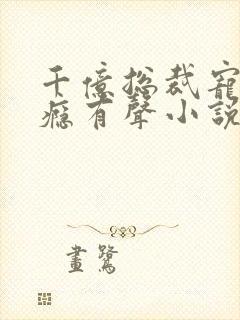 千億総裁寵
癮有聲小說
畫鷺